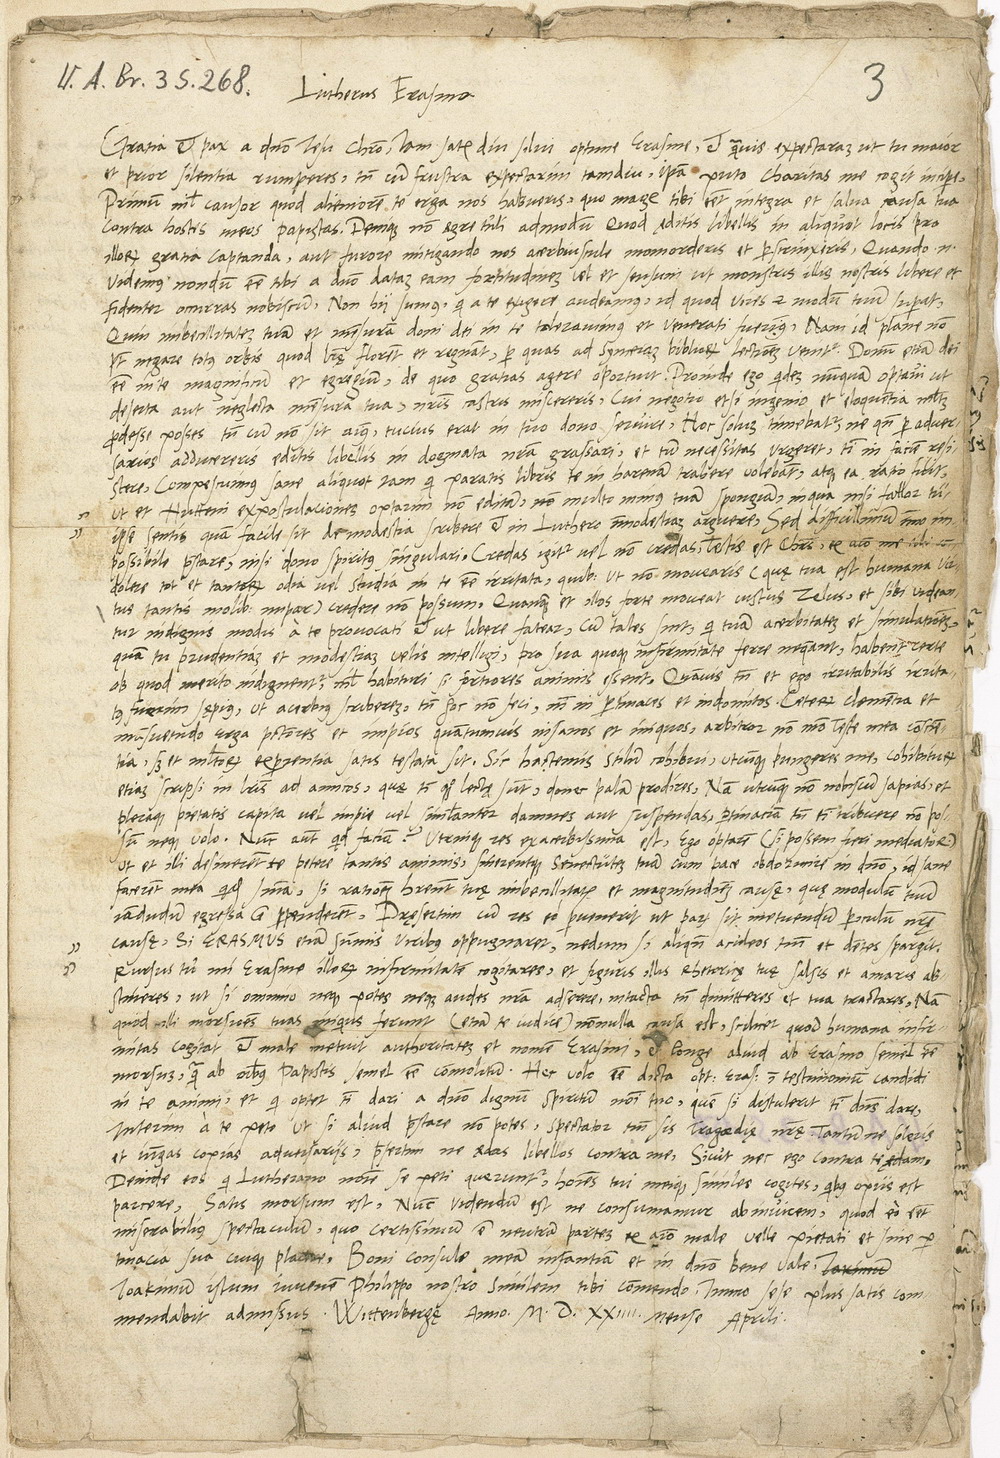 W. A. Br. 3 S. 268.
3
Lutherus Erasmo
Gratia et pax a dño Jesu Chrō, Iam satis diu silui optime Erasme, et quāvis expectarem ut tu maior
et prior silentiū rumperes, tñ cū frustra expectarim tamdiu, ipsa puto charitas me cogit incipere.
Primum nil causor quod alieniorē te erga nos habueris, quo magis tibi eēt integra et salua causa tua
contra hostes meos papistas. Deniq; nō aegre tuli admodū quod aeditis libellis in aliquot locis pro
illorum gratia captanda, aut furore mitigando nos acerbiuscule momorderis et perstrinxeris, Quando n.
videmus nondum eē tibi a dño datam eam fortitudinem vel et sensum ut monstris illis nostris libere et
fidenter occurras nobiscū, Non hij sumus, qui a te exigere audeamus, id quod vires et modū tuū superat,
Quin imbecillitatem tuam et mensuram doni dei in te toleravimus et venerati fuerimus, Nam id plane nō
pōt negare totus orbis quod literę florēt et regnant, per quas ad synceram bibliorum lectionem venitur. Donū etiā dei
eē in te magnificū et egregiū, de quo gratias agere oportuit. Proinde ego quidem nunquā optavi ut
deserta aut neglecta mensura tua, nr̄is castris miscereris, Cui negotio etsi ingenio et eloquentia multū
prodesse posses tñ cū nō sit animus, tucius erat in tuo dono servire, Hoc solum timebatur, ne qñ per adver-
sarios adducereris editis libellis in dogmata nr̄a grassari, et tum necessitas urgeret, tibi in faciē resi-
stere, Compescuimus sane aliquot iam qui paratis libris te in harenam trahere volebāt, atq; ea ratio fuit,
ut et Hutteni expostulationem optarim nō editam, nō multo minus tuam spongiam, in qua nisi fallor tu
ipse sentis quam facile sit de modestia scribere et in Luthero immodestiam arguere, Sed difficillimum imo im-
possibile prestare, nisi dono spiritus singulari. Credas igitur vel nō credas, testis est Chrs,
dolere tot et tantorum odia vel studia in te eē irritata, quibus ut nō movearis (quę tua est humana vir-
tus tantis molibus impar) credere nō possum. Quanq; et illos forte moveat iustus zelus, et sibi videan-
tur indignis modis à te provocati et ut libere fatear, Cū tales sint, qui tuā acerbitatem et simulationem,
quam tu prudentiam et modestiam velis intelligi, pro sua quoq; infirmitate ferre nequeant, habent certe
ob quod merito indignentur, nil habituri si fortiores animis essent. Quāvis tñ et ego irritabilis irrita-
tus fuerim sępius, ut acerbius scriberem, tñ hoc nō feci, nisi in pertinaces et indomitos. Ceterum clementia et
mansuetudo erga peccatores et impios quantumvis insanos et iniquos, arbitror nō modo teste mea conscien-
tia, sed et multorum experientia satis testata sit. Sic hactenus stilum cohibui, utcunq; pungeres me, cohibiturum
etiam scripsi in literis ad amicos, quę tibi quoq; lectę sunt, donec palam prodires. Nam utcunq; nō nobiscū sapias, et
pleraq; pietatis capita vel impie vel simulanter damnes aut suspendas, pertinaciā tñ tibi tribuere nō pos-
sum neq; volo. Nūc aūt quid faciam? Utrinq; res exacerbatissima est, Ego optarem (si possem fieri mediator)
ut et illi desinerent te petere tantis animis, sinerentq; senectutem tuam cum pace obdormire in dño, id sane
facerent mea quidem sententia, si rationem haberent tuę imbecillitatis et magnitudinem causę, quę modulum tuum
iamdudum egressa est perpenderent, Pręsertim cū res eo pervenerit ut parum sit metuendum periculum nr̄ę
causę, Si ERASMUS etiā summis viribus oppugnaret, nedum si aliquando aculeos tantum et dentes spargit.
Rursus tu mi Erasme illorum infirmitatem cogitares, et figuris illis rhetoricę tuę salsis et amaris ab-
stineres, ut si omnino neq; potes neq; audes nr̄a adserere, intacta tñ dimitteres et tua tractares, Nam
quod illi morsiones tuas iniquius ferunt (etiā te iudice) nōnulla causa est, scilicet quod humana infir-
mitas cogitat et male metuit authoritatem et nomen Erasmi, et longe aliud ab Erasmo semel eē
morsum, quam ab omnibus Papistis semel eē commolitum. Hec volo eē dicta opt: Eras: in testimonium candidi
in te animi, et qui optet tibi dari a dño dignum spiritum nomine tuo, quem si distulerit tibi dñs dare,
Interim à te peto ut si aliud prestare nō potes, spectator tantum sis tragoedię nr̄ę. Tantū ne socies
et iungas copias adversarijs, presertim ne ędas libellos contra me, Sicut nec ego contra te ędam,
Deinde eos qui Lutherano nomine se peti queruntur, homines tui meiq; similes cogites, quibus opus est
parcere, Satis morsum est, Nūc videndum est ne consumamur abinvicem, quod eo eēt
miserabilius spectaculum, quo certissimum est neutram partem ex animo male velle pietati et sine per-
tinacia sua cuiq; placere. Boni consule meam infantiam et in dño bene vale.
Joakimū istum iuvenem Philippo nostro similem tibi cōmendo. Immo sese plus satis com-
mendabit admissus. Wittenbergę Anno M. D. XXIIII. mense Aprili.